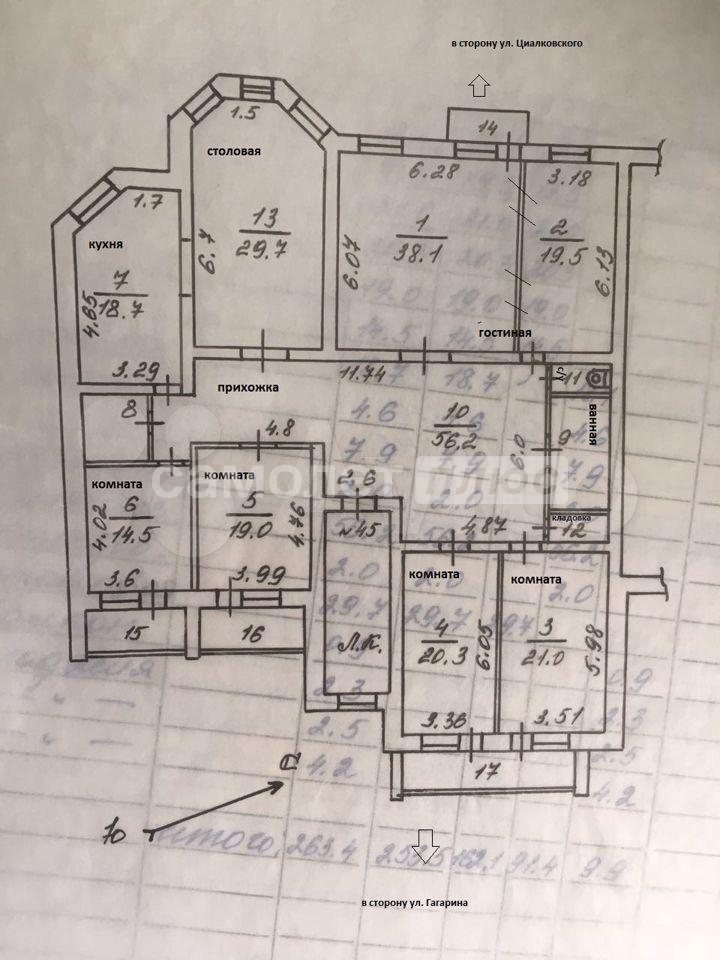 в сторону ул. Циалковского
14
1.5
столовая
6.28
3.18
1.7
кухня
13
29.7
6.7
1
38.1
6.07
2
19.5
6.13
7
18.7
4.65
гостиная
3.29
прихожка
11.74
су
11
8
4.8
10
56.2
6.0
9
ванная
самолет плюс
комната
6
14.5
4.02
комната
5
19.0
4.76
2.6
№45
4.87
кладовка
12
3.6
3.99
комната
комната
15
16
Л.К.
4
20.3
6.05
3
21.0
5.98
3.36
3.51
17
Ю
итого 263.4 253.5 162.1 91.4 9.9
в сторону ул. Гагарина